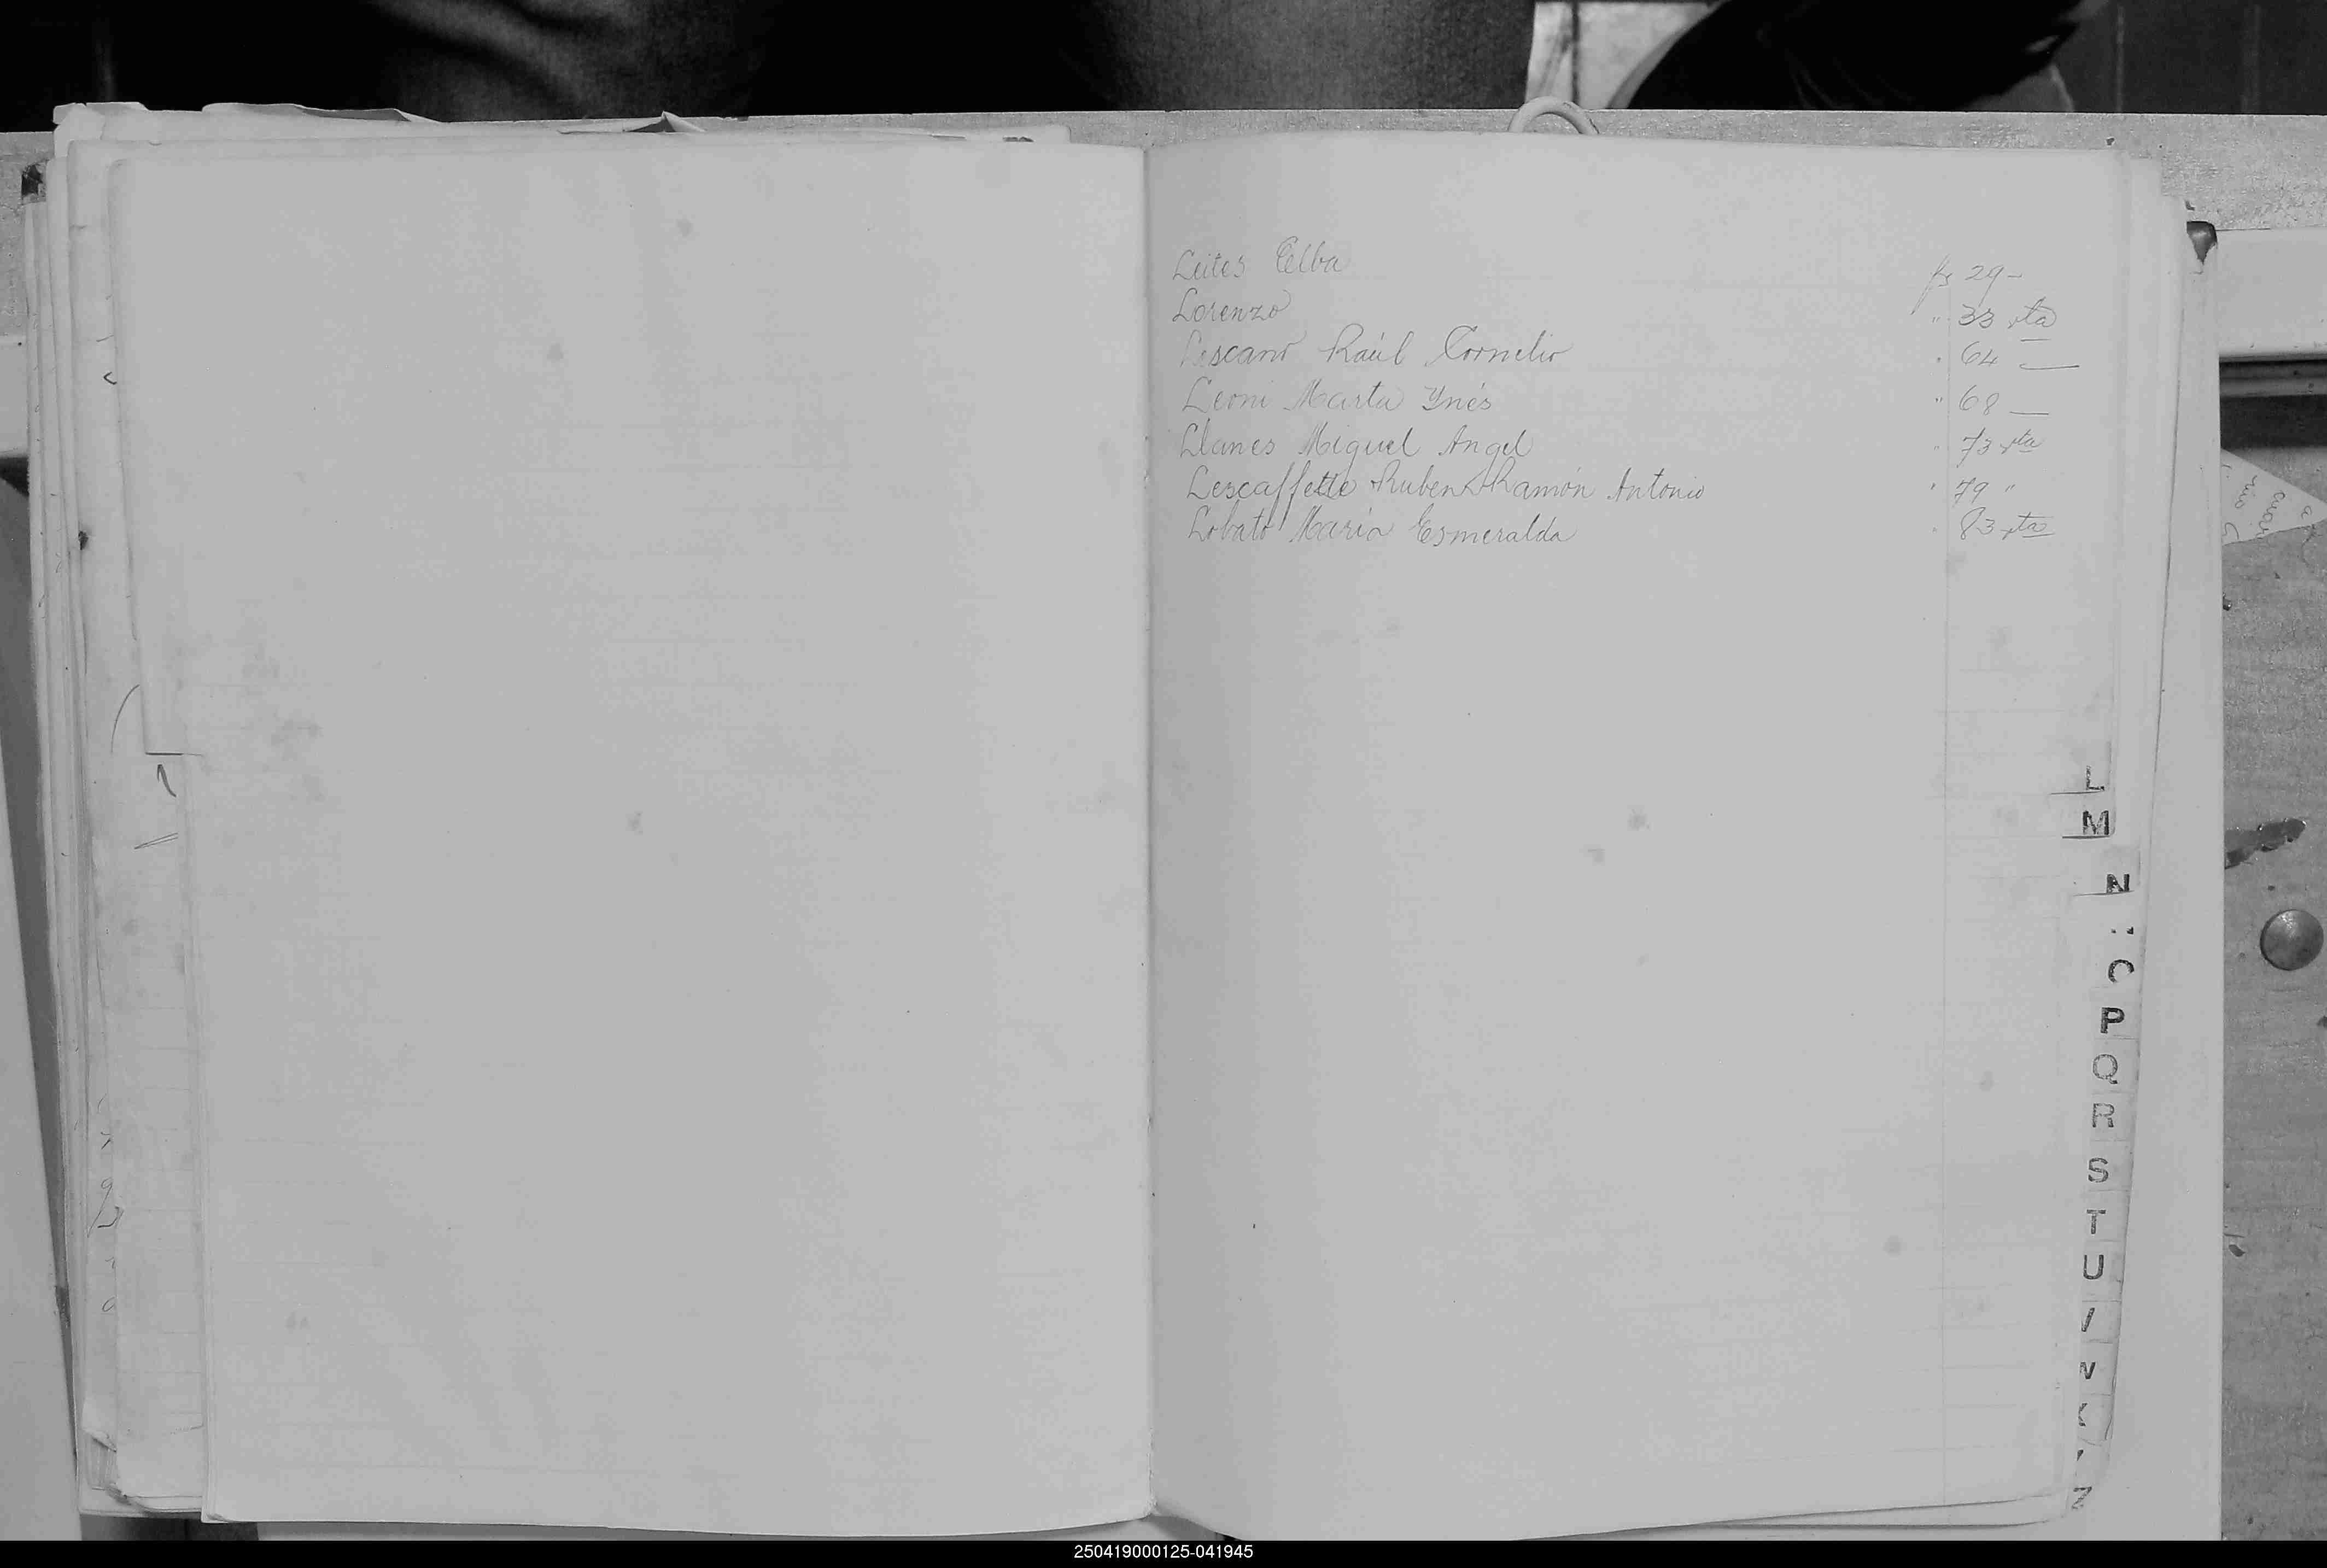 Leites Elba fs 29 -
Lorenzo " 33 vta
Lescano Raúl Cornelio " 64 —
Leoni Marta Ynés " 68 —
Llanes Miguel Angel " 73 vta
Lescaffette Ruben Ramón Antonio " 79 "
Lobato María Esmeralda " 83 vta
L
M
N
P
Q
R
S
T
U
Z
250419000125-041945